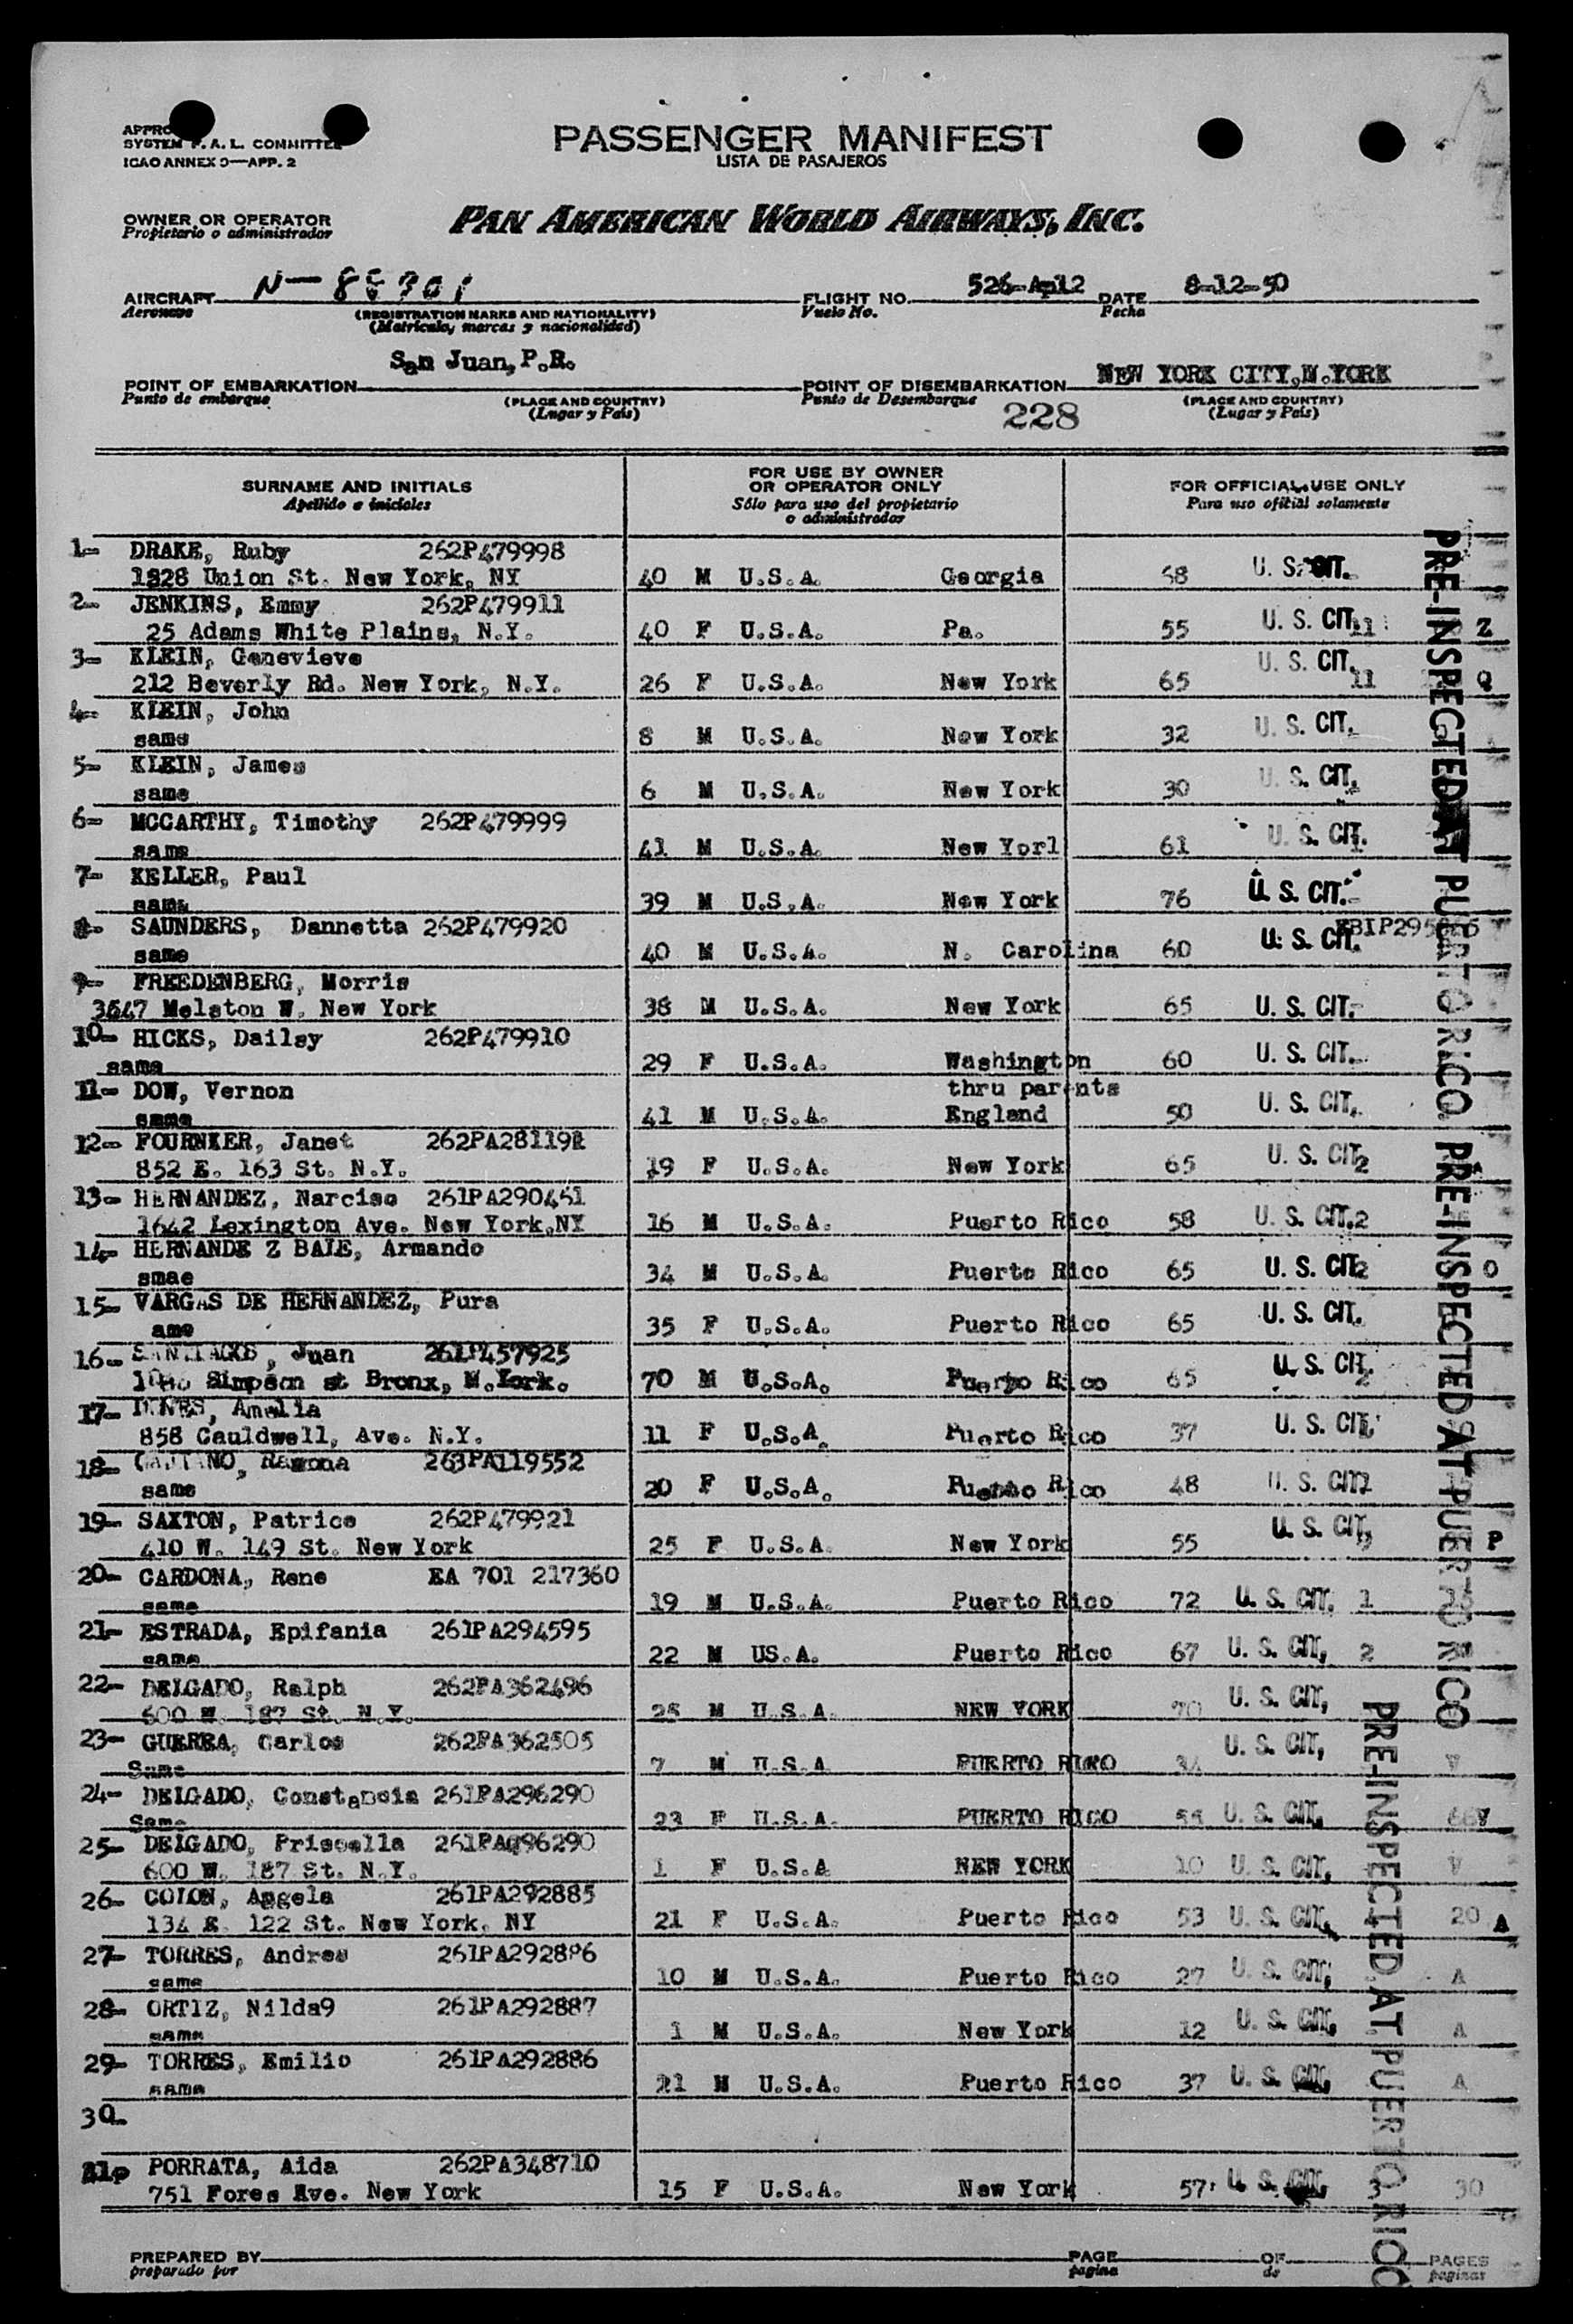 APPRO
SYSTEM F. A. L. COMMITTEE
ICAO ANNEX 9—APP. 2
PASSENGER MANIFEST
LISTA DE PASAJEROS
OWNER OR OPERATOR
Propietario o administrador
PAN AMERICAN WORLD AIRWAYS, INC.
AIRCRAFT N-88901
Aeronave
(REGISTRATION MARKS AND NATIONALITY)
(Matrícula, marcas y nacionalidad)
FLIGHT NO. 526-Ap12
Vuelo No.
DATE 8-12-50
Fecha
POINT OF EMBARKATION San Juan, P.R.
Punto de embarque
(PLACE AND COUNTRY)
(Lugar y País)
POINT OF DISEMBARKATION NEW YORK CITY, N.YORK
Punto de Desembarque
(PLACE AND COUNTRY)
(Lugar y País)
228
SURNAME AND INITIALS
Apellido e iniciales
FOR USE BY OWNER
OR OPERATOR ONLY
Sólo para uso del propietario
o administrador
FOR OFFICIAL USE ONLY
Para uso oficial solamente
1- DRAKE, Ruby 262P479998
1328 Union St. New York, NY 40 M U.S.A. Georgia 58 U. S. CIT.
2- JENKINS, Emmy 262P479911
25 Adams White Plains, N.Y. 40 F U.S.A. Pa. 55 U. S. CIT. 11 Z
3- KLEIN, Genevieve
212 Beverly Rd. New York, N.Y. 26 F U.S.A. New York 65 U. S. CIT. 11 Q
4- KLEIN, John
same 8 M U.S.A. New York 32 U. S. CIT.
5- KLEIN, James
same 6 M U.S.A. New York 30 U. S. CIT.
6- MCCARTHY, Timothy 262P479999
same 41 M U.S.A. New Yorl 61 U. S. CIT.
7- KELLER, Paul
same 39 M U.S.A. New York 76 U. S. CIT.
8- SAUNDERS, Dannetta 262P479920
same 40 M U.S.A. N. Carolina 60 U. S. CIT.
9- FREEDENBERG, Morris
3647 Melston W. New York 38 M U.S.A. New York 65 U. S. CIT.
10- HICKS, Dailey 262P479910
same 29 F U.S.A. Washington 60 U. S. CIT.
11- DOW, Vernon thru parents
same 41 M U.S.A. England 50 U. S. CIT.
12- FOURNIER, Janet 262PA281192
852 E. 163 St. N.Y. 19 F U.S.A. New York 65 U. S. CIT. 2
13- HERNANDEZ, Narciso 261PA290461
1642 Lexington Ave. New York,NY 16 M U.S.A. Puerto Rico 58 U. S. CIT. 2
14- HERNANDE Z BAIE, Armando
smae 34 M U.S.A. Puerto Rico 65 U. S. CIT. 2 O
15- VARGAS DE HERNANDEZ, Pura
ame 35 F U.S.A. Puerto Rico 65 U. S. CIT.
16- Juan 261P457925
Simpson st Bronx, N.York. 70 M U.S.A. Puerto Rico 65 U. S. CIT. 2
17- Amelia
858 Cauldwell, Ave. N.Y. 11 F U.S.A. Puerto Rico 37 U. S. CIT.
18- Ramona 263PA119552
same 20 F U.S.A. Puerto Rico 48 U. S. CIT.
19- SAXTON, Patrice 262P479921
410 W. 149 St. New York 25 F U.S.A. New York 55 U. S. CIT. P
20- CARDONA, Rene EA 701 217360
same 19 M U.S.A. Puerto Rico 72 U. S. CIT. 1
21- ESTRADA, Epifania 261PA294595
same 22 M US.A. Puerto Rico 67 U. S. CIT. 2
22- DELGADO, Ralph 262PA362496
600 W. 187 St. N.Y. 25 M U.S.A. NEW YORK 70 U. S. CIT.
23- GUERRA, Carlos 262PA362505
Same 7 M U.S.A PUERTO RICO 34 U. S. CIT. V
24- DELGADO, Constancia 261PA296290
Same 23 F U.S.A. PUERTO RICO 55 U. S. CIT. 66V
25- DELGADO, Priscella 261PA296290
600 W. 187 St. N.Y. 1 F U.S.A NEW YORK 10 U. S. CIT. V
26- COLON, Angela 261PA292885
134 E. 122 St. New York, NY 21 F U.S.A. Puerto Rico 53 U. S. CIT. 20 A
27- TORRES, Andres 261PA292886
same 10 M U.S.A. Puerto Rico 27 U. S. CIT. A
28- ORTIZ, Nilda9 261PA292887
same 1 M U.S.A. New York 12 U. S. CIT. A
29- TORRES, Emilio 261PA292886
same 21 M U.S.A. Puerto Rico 37 U. S. CIT. A
30-
31- PORRATA, Aida 262PA348710
751 Fores Ave. New York 15 F U.S.A. New York 57 U. S. CIT. 3 30
PRE-INSPECTED AT PUERTO RICO.
PRE-INSPECTED AT PUERTO RICO
PRE-INSPECTED AT PUERTO RICO
PREPARED BY
preparado por
PAGE OF PAGES
pagina de paginas